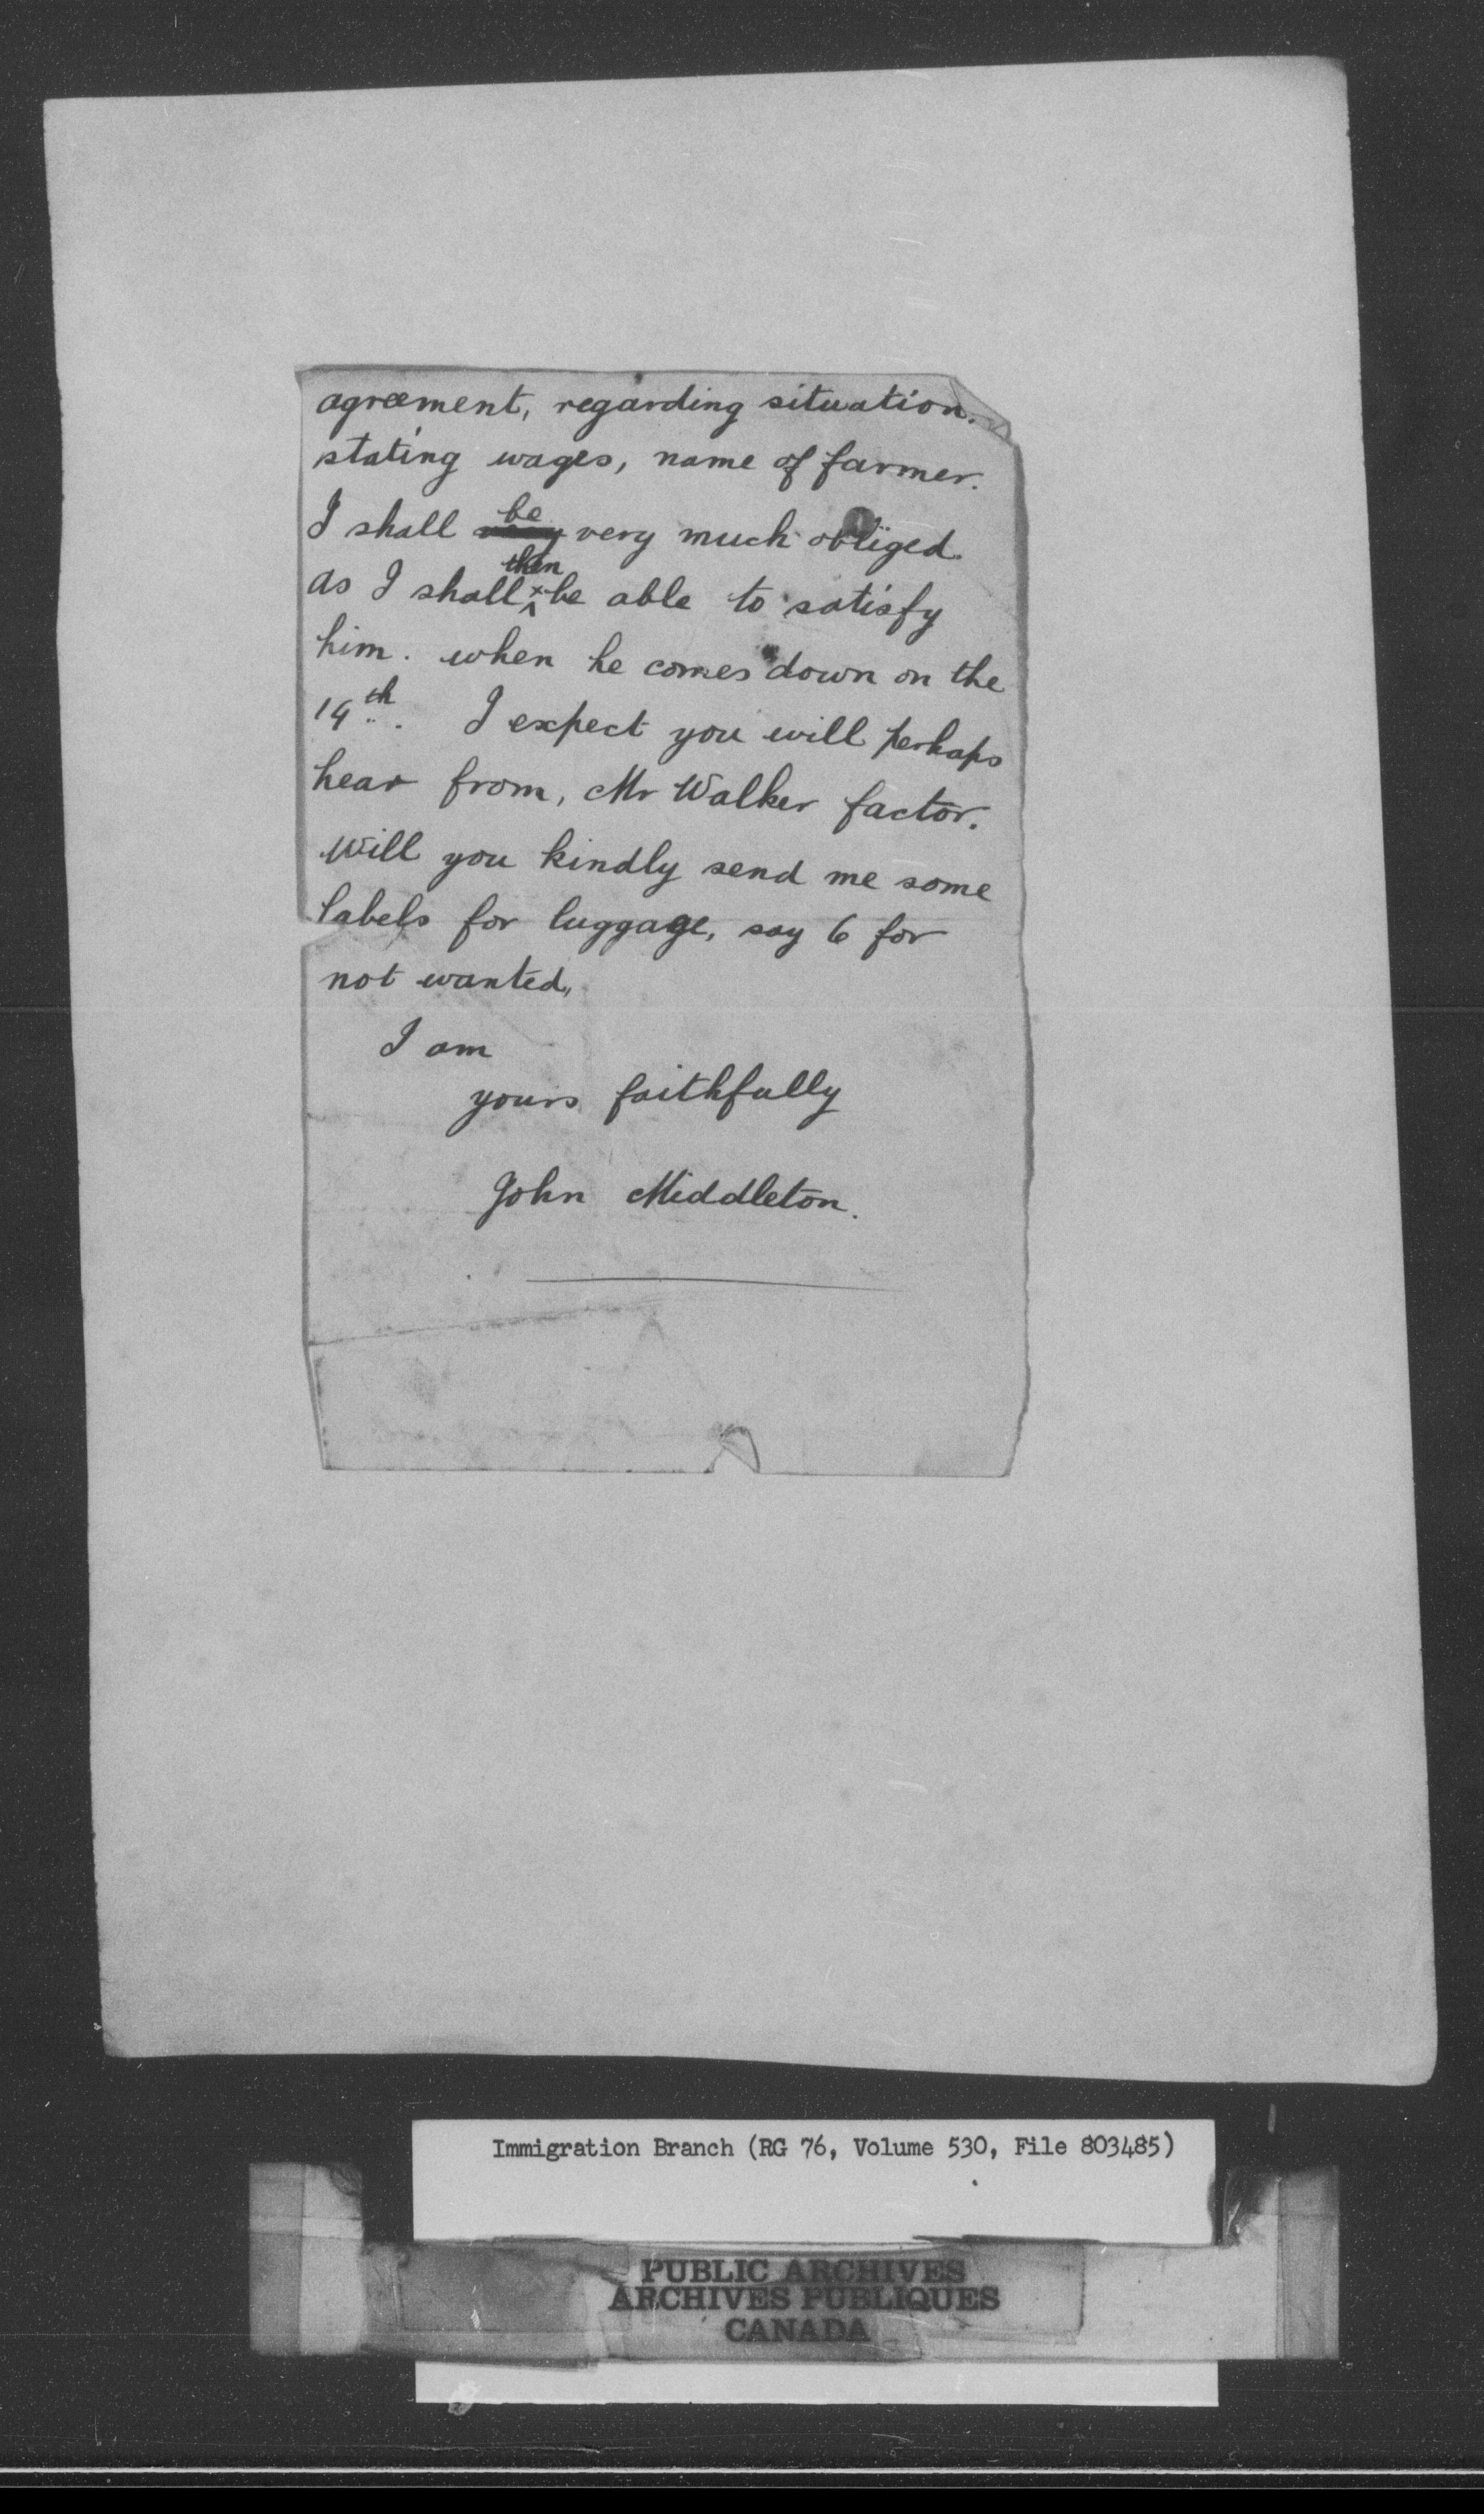 agreement, regarding situation.
stating wages, name of farmer.
I shall be very much obliged.
as I shall then be able to satisfy
him. when he comes down on the
14th. I expect you will perhaps
hear from, Mr Walker factor.
Will you kindly send me some
labels for luggage, say 6 for
not wanted,
I am
yours faithfully
John Middleton.
Immigration Branch (RG 76, Volume 530, File 803485)
PUBLIC ARCHIVES
ARCHIVES PUBLIQUES
CANADA